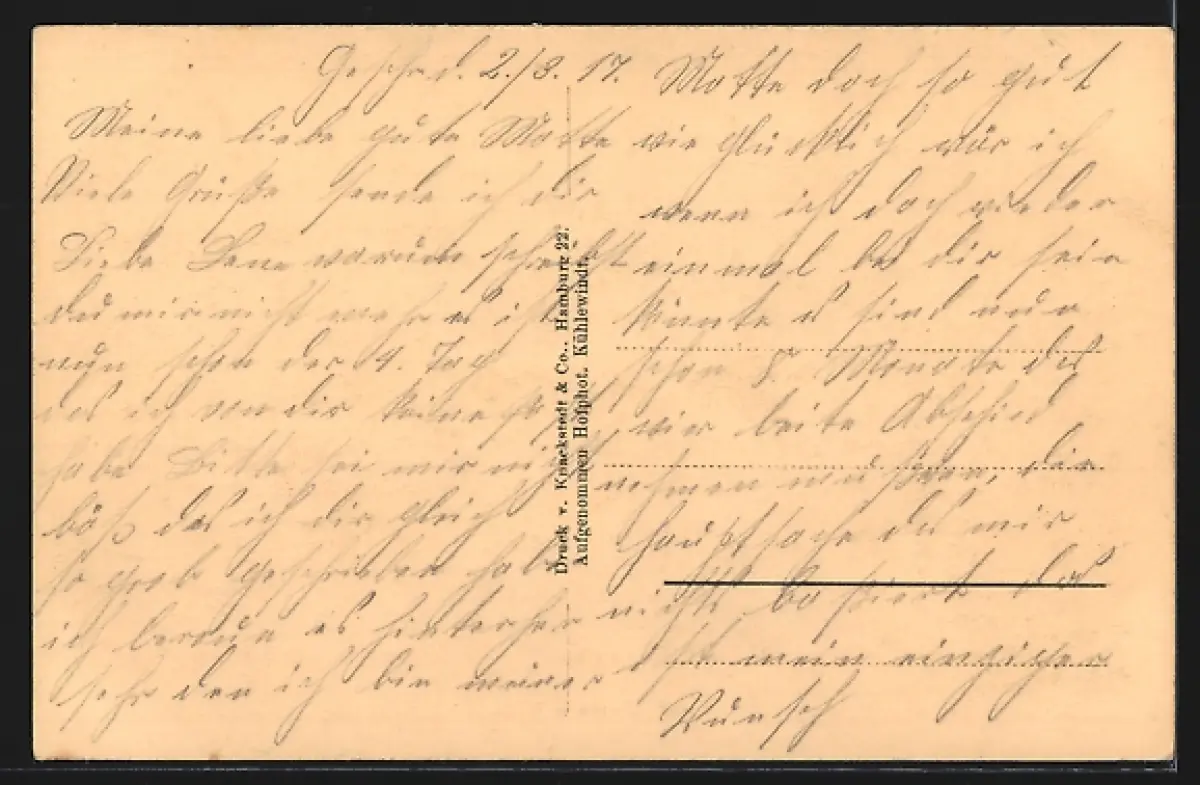 Geschrd. 2./3. 17.
Meine liebe gute Motte
Viele Grüße sende ich dir
Liebe Lene warum schreibst
du mir nicht mehr es ist
nun schon der 4. Tag
das ich von dir keine Post
habe Bitte sei mir nicht
böß das ich dir gleich
so grob geschrieben habe
ich bereue es hinterher
sehr den ich bin immer
Motte doch so gut
wie glücklich wär ich
wenn ich doch wieder
einmal bei dir sein
könnte es sind nun
schon 8. Monate das
wir beite Abschied
nehmen mußten, die
Hauptsache das mir
nichts passiert das
ist mein einziger
Wunsch
Druck v. Knackstedt & Co., Hamburg 22.
Aufgenommen Hofphot. Kühlewindt.